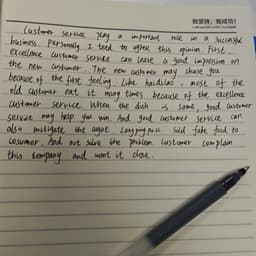 我坚持，我成功！
Customer service play a important role in a successful
business. Personally I teed to agree this opinion. First,
excellence customer service can leave a good impression on
the new customer. The new customer may chose you
because of the first feeling. Like haidilao, most of the
old customer eat it many times because of the excellence
customer service. When the dish is same, good customer
service may help you win. And good customer service can
also mitigate the agre. Longping pass sold fake food to
cosumer. And not solve the problem. Customer complain
this company and want it close.